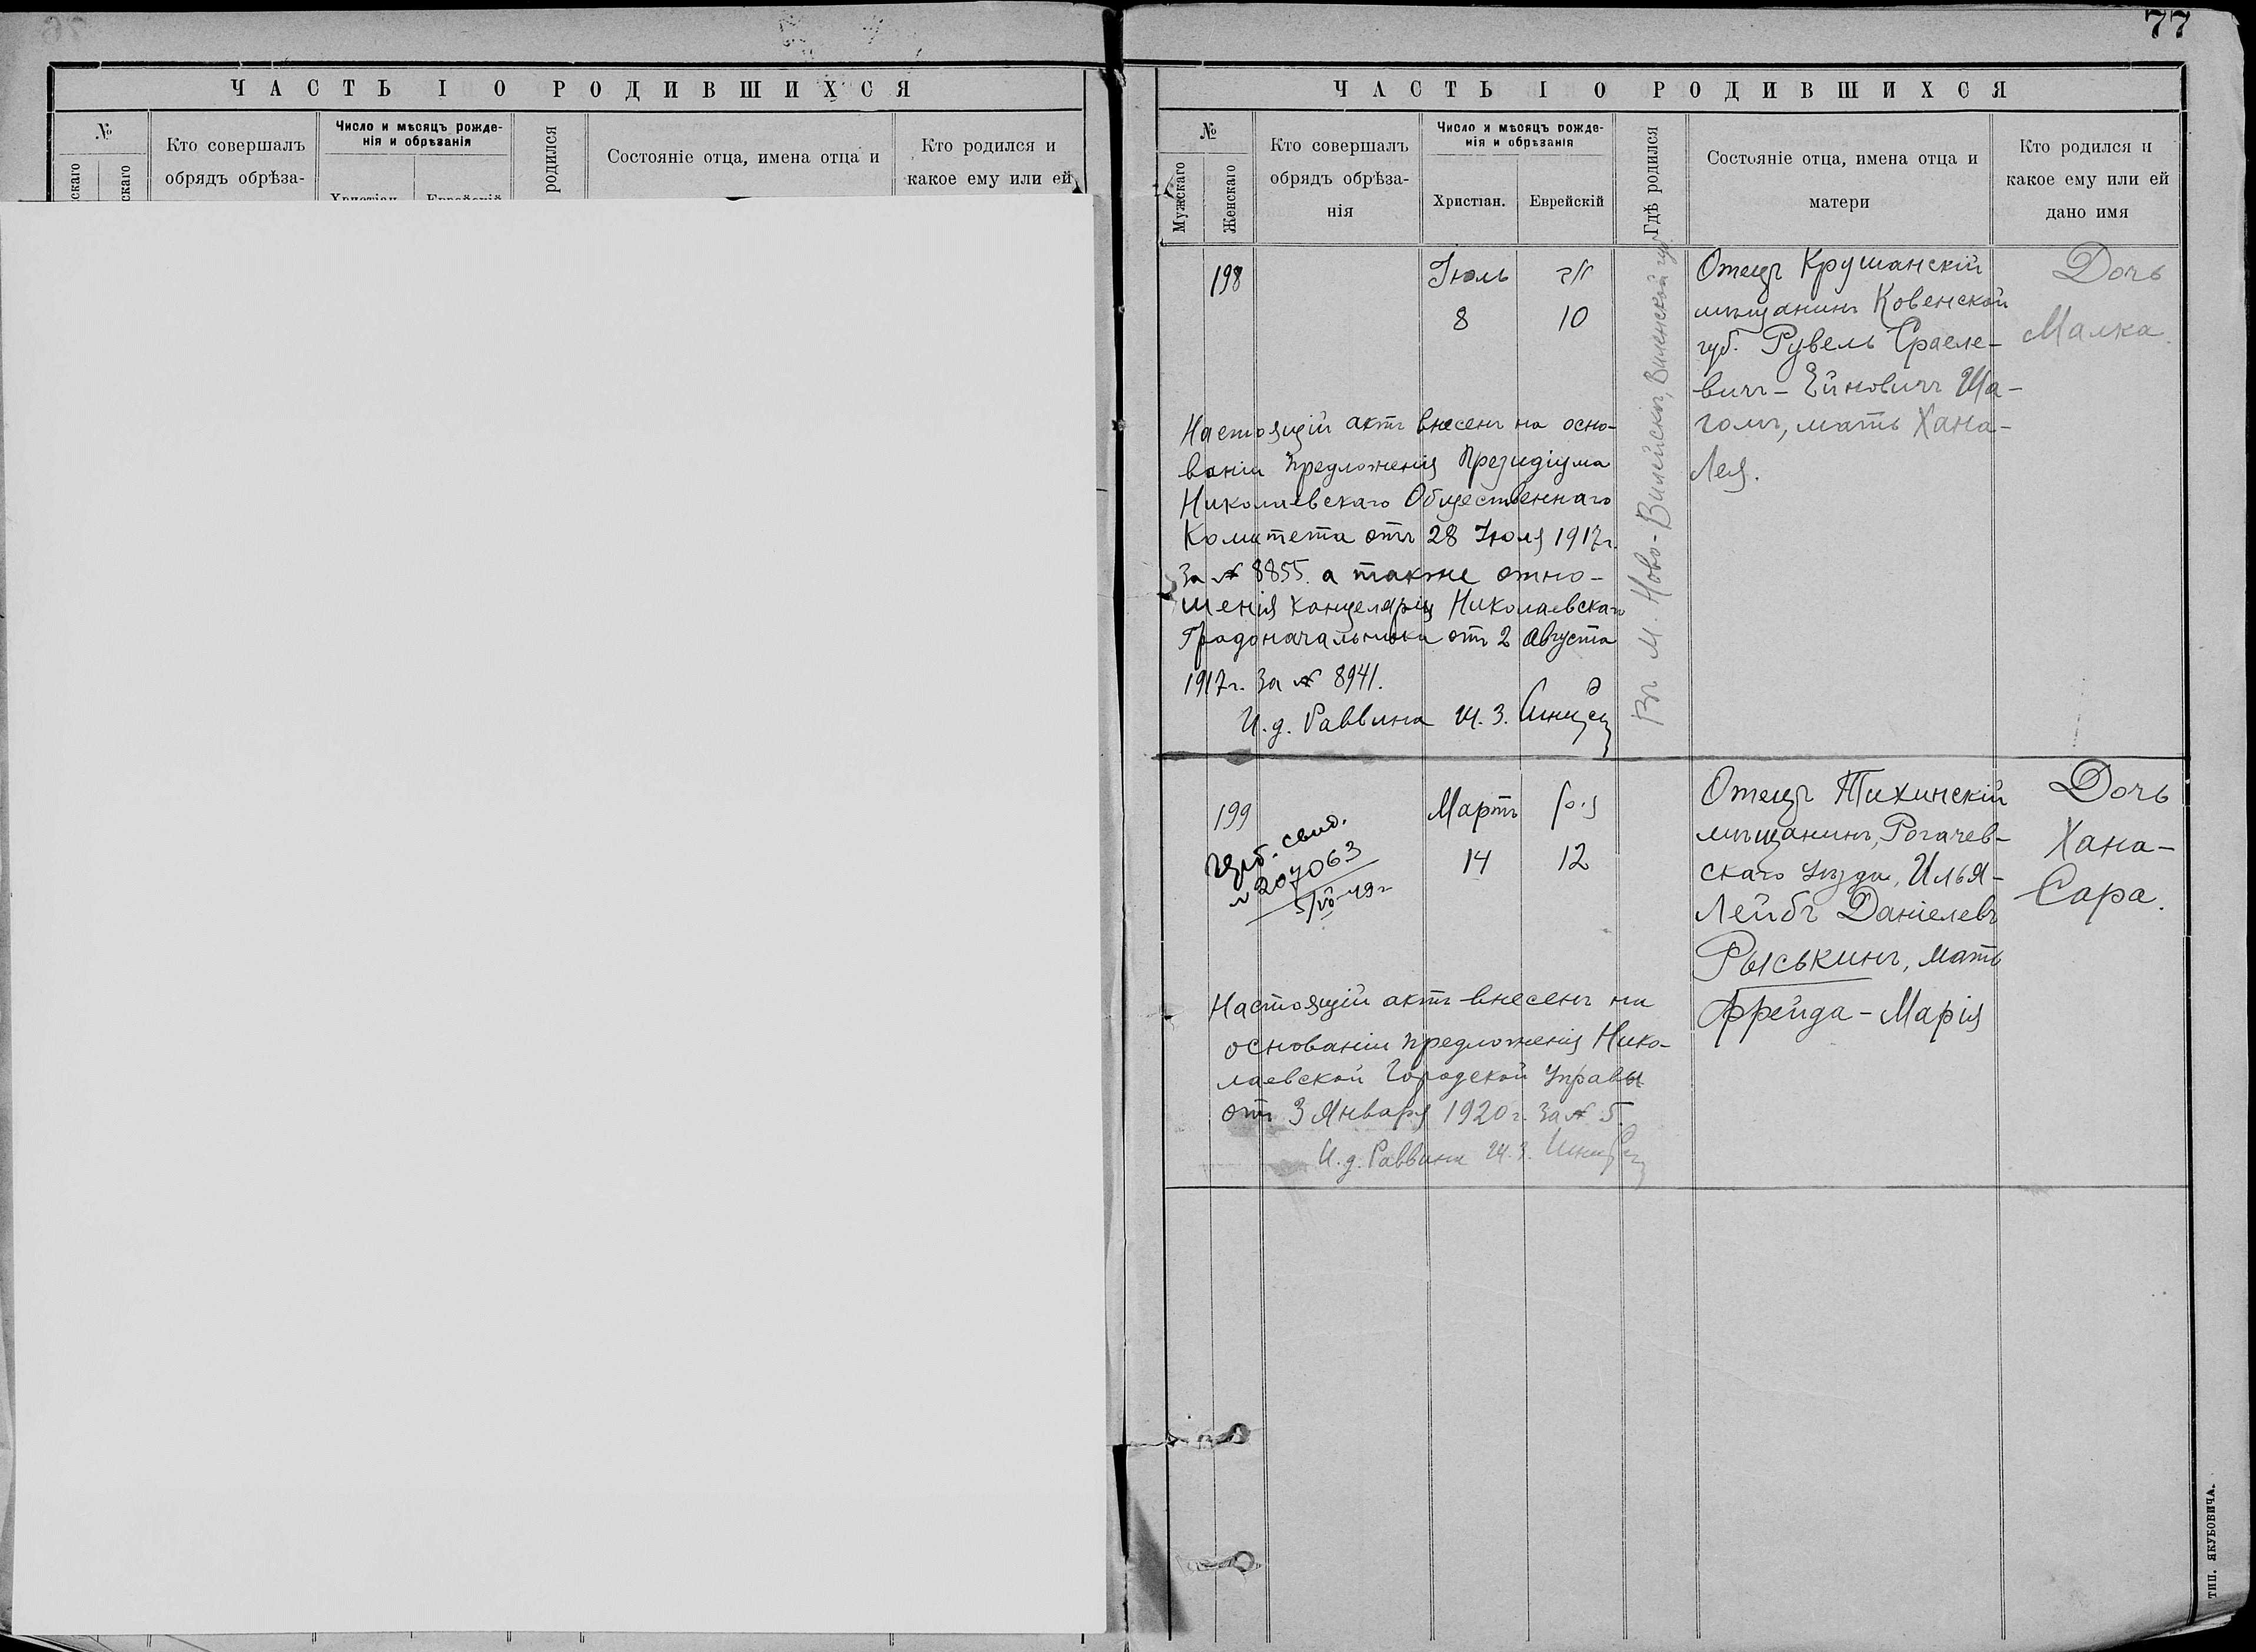 77
ЧАСТЬ I О РОДИВШИХСЯ
№
Кто совершалъ
обрядъ обрѣза-
Число и мѣсяцъ рожде-
нія и обрѣзанія
родился
Состояніе отца, имена отца и
Кто родился и
какое ему или ей
ЧАСТЬ I О РОДИВШИХСЯ
№
Мужскаго
Женскаго
Кто совершалъ
обрядъ обрѣза-
нія
Число и мѣсяцъ рожде-
нія и обрѣзанія
Христіан.
Еврейскій
Гдѣ родился
Состояніе отца, имена отца и
матери
Кто родился и
какое ему или ей
дано имя
198
Іюль
8
10
Въ м. Ново-Вилейскъ, Виленской губ.
Отецъ Крушанскій
мѣщанинъ Ковенской
губ. Рувель Сраеле-
вичъ-Ейновичъ Ша-
голъ, мать Хана-
Лея.
Дочь
Малка.
Настоящій актъ внесенъ на осно-
ваніи предложенія Президіума
Николаевскаго Общественнаго
Комитета отъ 28 Іюля 1917г.
За № 8855. а также отно-
шенія Канцеляріи Николаевскаго
Градоначальника отъ 2 Августа
1917г. За № 8941.
И.д. Раввина Ш.З.
199
свид.
№ 207063
Мартъ
14
12
Отецъ Тихинскій
мѣщанинъ, Рогачев-
скаго уѣзда, Илья-
Лейбъ Даніелевъ
Рыськинъ, мать
Фрейда-Марія
Дочь
Хана-
Сара.
Настоящій актъ внесенъ на
основаніи предложенія Нико-
лаевской Городской Управы
отъ 3 Января 1920г. За № 5.
И.д. Раввина Ш.З.
ТИП. ЯКУБОВИЧА.